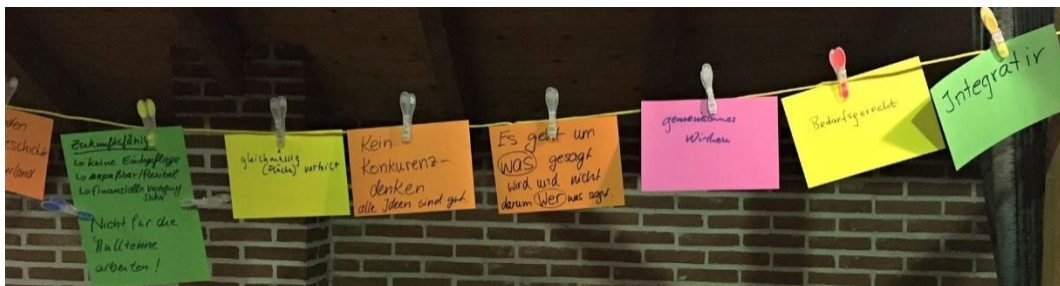 Zukunftsfähig
↳ keine Eintagsfliege
↳ anpaßbar/flexibel
↳ finanzielle
Nicht für die
Mülltonne
arbeiten!
gleichmässig
(Fläche) verteilt
Kein
Konkurenz-
denken
alle Ideen sind gut.
Es geht um
was gesagt
wird und nicht
darum wer was sagt.
gemeinsames
Wirken
Bedarfsgerecht
Integrativ